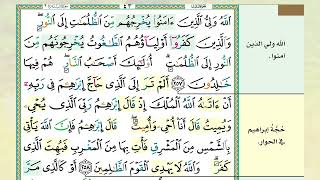 ٤٣
ٱللَّهُ وَلِيُّ ٱلَّذِينَ ءَامَنُوا۟ يُخْرِجُهُم مِّنَ ٱلظُّلُمَـٰتِ إِلَى ٱلنُّورِ ۖ
وَٱلَّذِينَ كَفَرُوٓا۟ أَوْلِيَآؤُهُمُ ٱلطَّـٰغُوتُ يُخْرِجُونَهُم مِّنَ
ٱلنُّورِ إِلَى ٱلظُّلُمَـٰتِ ۗ أُو۟لَـٰٓئِكَ أَصْحَـٰبُ ٱلنَّارِ ۖ هُمْ فِيهَا
خَـٰلِدُونَ ٢٥٧ أَلَمْ تَرَ إِلَى ٱلَّذِى حَآجَّ إِبْرَٰهِـۧمَ فِى رَبِّهِۦٓ
أَنْ ءَاتَىٰهُ ٱللَّهُ ٱلْمُلْكَ إِذْ قَالَ إِبْرَٰهِـۧمُ رَبِّىَ ٱلَّذِى يُحْىِۦ
وَيُمِيتُ قَالَ أَنَا۠ أُحْىِۦ وَأُمِيتُ ۖ قَالَ إِبْرَٰهِـۧمُ فَإِنَّ ٱللَّهَ يَأْتِى
بِٱلشَّمْسِ مِنَ ٱلْمَشْرِقِ فَأْتِ بِهَا مِنَ ٱلْمَغْرِبِ فَبُهِتَ ٱلَّذِى
كَفَرَ ۗ وَٱللَّهُ لَا يَهْدِى ٱلْقَوْمَ ٱلظَّـٰلِمِينَ ٢٥٨ أَوْ كَٱلَّذِى مَرَّ
الله ولي الذين
آمنوا.
حجة إبراهيم
في الحوار.